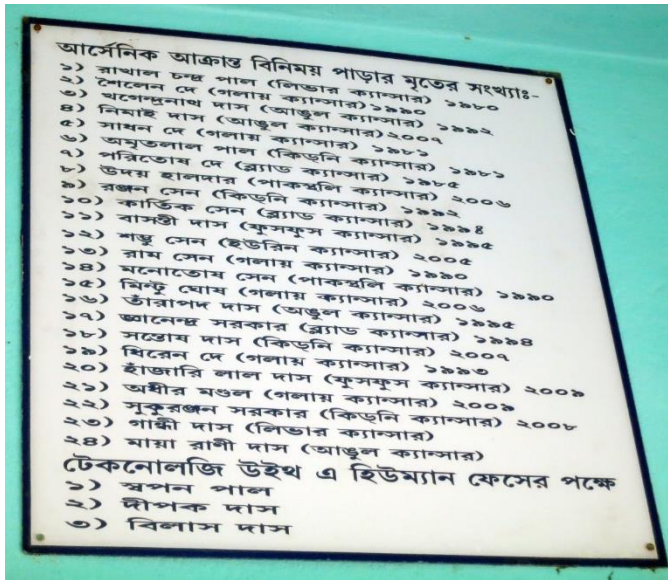 আর্সেনিক আক্রান্ত বিনিময় পাড়ার মৃতের সংখ্যাঃ-
১) রাখাল চন্দ্র পাল (লিভার ক্যান্সার) ১৯৮০
২) শৈলেন দে (গলায় ক্যান্সার) ১৯৯০
৩) খগেন্দ্রনাথ দাস (আঙুল ক্যান্সার) ১৯৯২
৪) নিমাই দাস (আঙুল ক্যান্সার) ২০০৭
৫) সাধন দে (গলায় ক্যান্সার) ১৯৮১
৬) অমৃতলাল পাল (কিডনি ক্যান্সার) ১৯৮১
৭) পরিতোষ দে (ব্ল্যাড ক্যান্সার) ১৯৮৫
৮) উদয় হালদার (পাকস্থলি ক্যান্সার) ২০০৬
৯) রঞ্জন সেন (কিডনি ক্যান্সার) ১৯৯২
১০) কার্তিক সেন (ব্ল্যাড ক্যান্সার) ১৯৯৪
১১) বাসন্তী দাস (ফুসফুস ক্যান্সার) ১৯৯৫
১২) শম্ভু সেন (ইউরিন ক্যান্সার) ২০০৫
১৩) রাম সেন (গলায় ক্যান্সার) ১৯৯০
১৪) মনোতোষ সেন (পাকস্থলি ক্যান্সার) ১৯৯০
১৫) মিন্টু ঘোষ (গলায় ক্যান্সার) ২০০৬
১৬) তাঁরাপদ দাস (অঙুল ক্যান্সার) ১৯৯৫
১৭) জ্ঞানেন্দ্র সরকার (ব্ল্যাড ক্যান্সার) ১৯৯৪
১৮) সন্তোষ দাস (কিডনি ক্যান্সার) ২০০৭
১৯) ধিরেন দে (গলায় ক্যান্সার) ১৯৯৩
২০) হাঁজারি লাল দাস (ফুসফুস ক্যান্সার) ২০০৯
২১) অধীর মণ্ডল (গলায় ক্যান্সার) ২০০৯
২২) সুকুরঞ্জন সরকার (কিডনি ক্যান্সার) ২০০৮
২৩) গান্ধী দাস (লিভার ক্যান্সার)
২৪) মায়া রানী দাস (আঙুল ক্যান্সার)
টেকনোলজি উইথ এ হিউম্যান ফেসের পক্ষে
১) স্বপন পাল
২) দীপক দাস
৩) বিলাস দাস